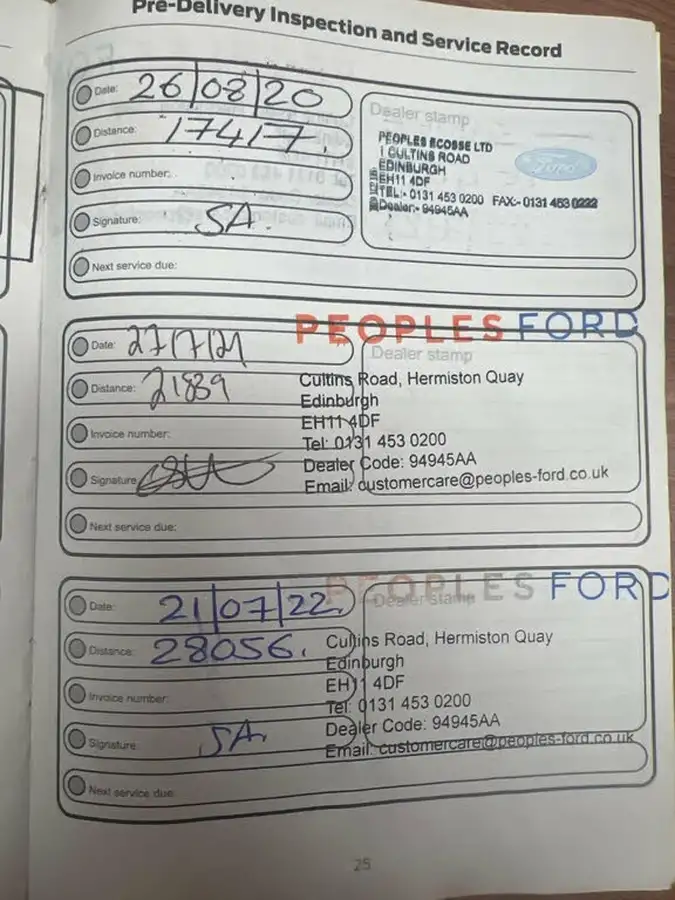 Pre-Delivery Inspection and Service Record
Date: 26/08/20
Distance: 17417.
Invoice number:
Signature: SA.
Next service due:
Dealer stamp
PEOPLES ECOSSE LTD
1 CULTINS ROAD
EDINBURGH
EH11 4DF
TEL:- 0131 453 0200 FAX:- 0131 453 0222
Dealer:- 94945AA
Ford
PEOPLES FORD
Date: 27/7/21
Distance: 21839
Invoice number:
Signature
Next service due:
Dealer stamp
Cultins Road, Hermiston Quay
Edinburgh
EH11 4DF
Tel: 0131 453 0200
Dealer Code: 94945AA
Email: customercare@peoples-ford.co.uk
PEOPLES FORD
Date: 21/07/22.
Distance: 28056.
Invoice number:
Signature: SA.
Next service due:
Dealer stamp
Cultins Road, Hermiston Quay
Edinburgh
EH11 4DF
Tel: 0131 453 0200
Dealer Code: 94945AA
Email: customercare@peoples-ford.co.uk
25